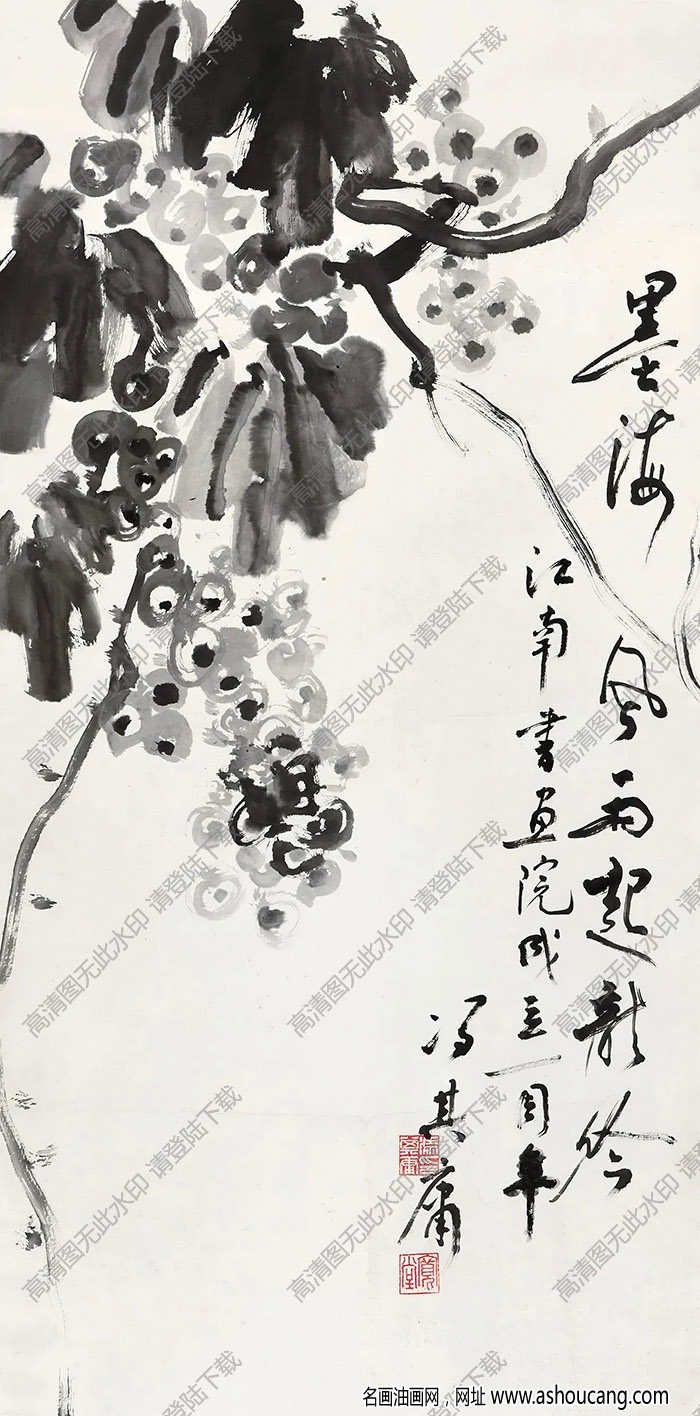 墨海风雨起龍吟
江南書画院成立一周年
冯其庸
高清图无此水印 请登陆下载
名画油画网，网址 www.ashoucang.com